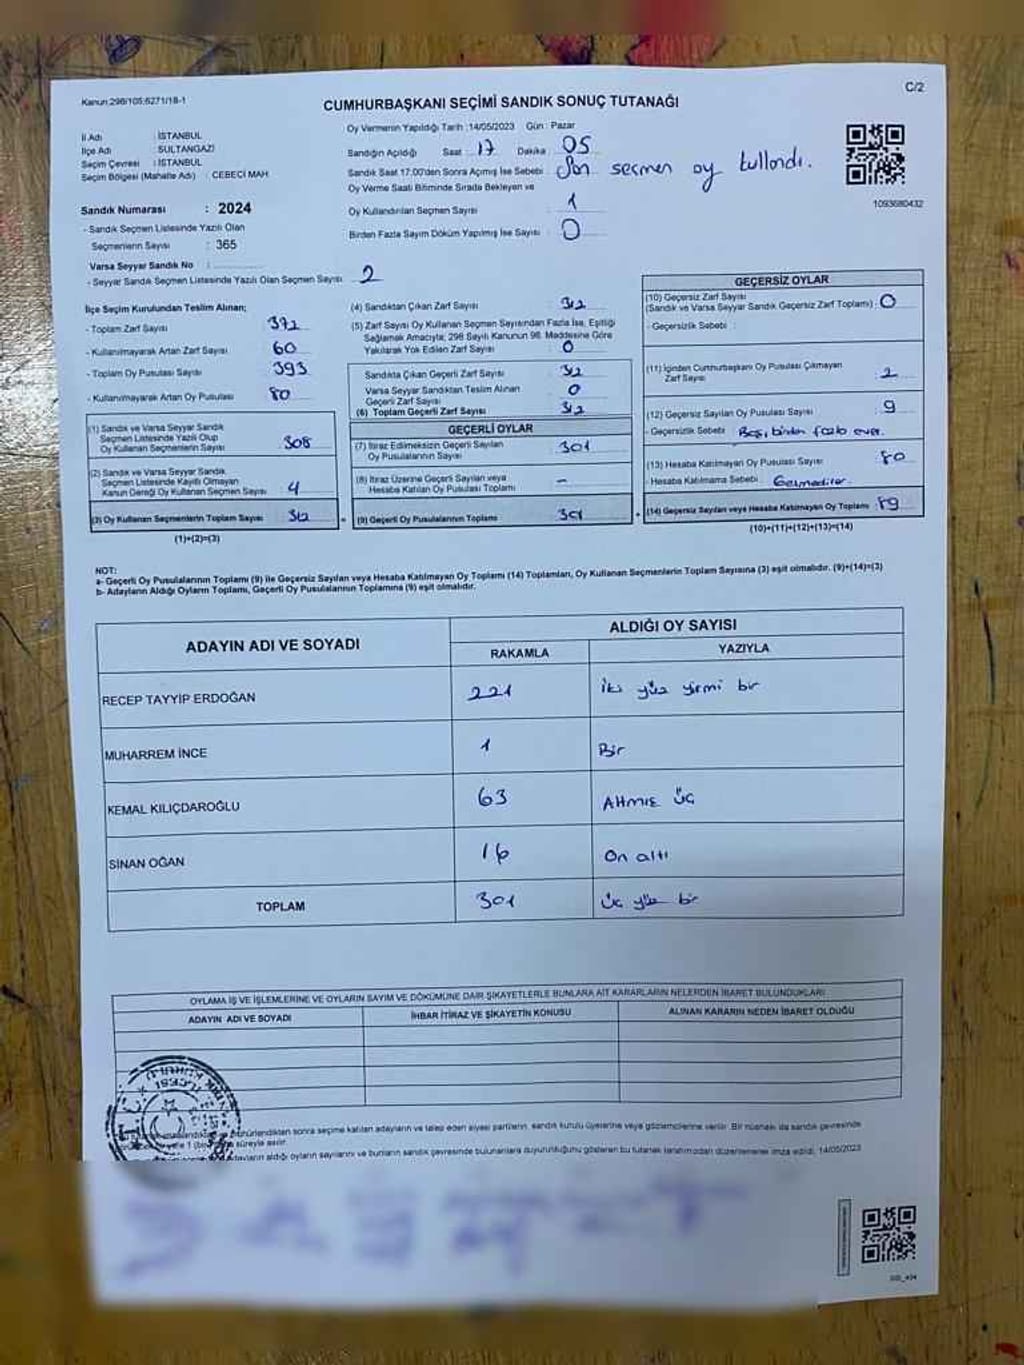 Kanun:298/105;6271/18-1
C/2
CUMHURBAŞKANI SEÇİMİ SANDIK SONUÇ TUTANAĞI
İl Adı : İSTANBUL
İlçe Adı : SULTANGAZİ
Seçim Çevresi : İSTANBUL
Seçim Bölgesi (Mahalle Adı) : CEBECİ MAH.
Sandık Numarası : 2024
- Sandık Seçmen Listesinde Yazılı Olan
Seçmenlerin Sayısı : 365
Varsa Seyyar Sandık No :
- Seyyar Sandık Seçmen Listesinde Yazılı Olan Seçmen Sayısı 2
Oy Vermenin Yapıldığı Tarih :14/05/2023 Gün : Pazar
Sandığın Açıldığı Saat : 17 Dakika : 05
Sandık Saat 17.00'den Sonra Açılmış İse Sebebi : Son seçmen oy kullandı.
Oy Verme Saati Bitiminde Sırada Bekleyen ve
Oy Kullandırılan Seçmen Sayısı : 1
Birden Fazla Sayım Döküm Yapılmış İse Sayısı : 0
1093680432
İlçe Seçim Kurulundan Teslim Alınan;
- Toplam Zarf Sayısı : 372
- Kullanılmayarak Artan Zarf Sayısı : 60
- Toplam Oy Pusulası Sayısı : 393
- Kullanılmayarak Artan Oy Pusulası : 80
(1) Sandık ve Varsa Seyyar Sandık
Seçmen Listesinde Yazılı Olup
Oy Kullanan Seçmenlerin Sayısı : 308
(2) Sandık ve Varsa Seyyar Sandık
Seçmen Listesinde Kayıtlı Olmayan
Kanun Gereği Oy Kullanan Seçmen Sayısı : 4
(3) Oy Kullanan Seçmenlerin Toplam Sayısı : 312
(1)+(2)=(3)
(4) Sandıktan Çıkan Zarf Sayısı : 312
(5) Zarf Sayısı Oy Kullanan Seçmen Sayısından Fazla İse, Eşitliği
Sağlamak Amacıyla; 298 Sayılı Kanunun 98. Maddesine Göre
Yakılarak Yok Edilen Zarf Sayısı : 0
Sandıkta Çıkan Geçerli Zarf Sayısı : 312
Varsa Seyyar Sandıktan Teslim Alınan
Geçerli Zarf Sayısı : 0
(6) Toplam Geçerli Zarf Sayısı : 312
GEÇERLİ OYLAR
(7) İtiraz Edilmeksizin Geçerli Sayılan
Oy Pusulalarının Sayısı : 301
(8) İtiraz Üzerine Geçerli Sayılan veya
Hesaba Katılan Oy Pusulası Toplamı : -
(9) Geçerli Oy Pusulalarının Toplamı : 301
GEÇERSİZ OYLAR
(10) Geçersiz Zarf Sayısı
(Sandık ve Varsa Seyyar Sandık Geçersiz Zarf Toplamı) : 0
- Geçersizlik Sebebi :
(11) İçinden Cumhurbaşkanı Oy Pusulası Çıkmayan
Zarf Sayısı : 2
(12) Geçersiz Sayılan Oy Pusulası Sayısı : 9
- Geçersizlik Sebebi : Boş, birden fazla evet.
(13) Hesaba Katılmayan Oy Pusulası Sayısı : 80
- Hesaba Katılmama Sebebi : Gelmediler.
(14) Geçersiz Sayılan veya Hesaba Katılmayan Oy Toplamı : 89
(10)+(11)+(12)+(13)=(14)
NOT:
a- Geçerli Oy Pusulalarının Toplamı (9) ile Geçersiz Sayılan veya Hesaba Katılmayan Oy Toplamı (14) Toplamları, Oy Kullanan Seçmenlerin Toplam Sayısına (3) eşit olmalıdır. (9)+(14)=(3)
b- Adayların Aldığı Oyların Toplamı, Geçerli Oy Pusulalarının Toplamına (9) eşit olmalıdır.
ADAYIN ADI VE SOYADI
ALDIĞI OY SAYISI
RAKAMLA YAZIYLA
RECEP TAYYİP ERDOĞAN 221 İki yüz yirmi bir
MUHARREM İNCE 1 Bir
KEMAL KILIÇDAROĞLU 63 Altmış üç
SİNAN OĞAN 16 On altı
TOPLAM 301 üç yüz bir
OYLAMA İŞ VE İŞLEMLERİNE VE OYLARIN SAYIM VE DÖKÜMÜNE DAİR ŞİKAYETLERLE BUNLARA AİT KARARLARIN NELERDEN İBARET BULUNDUKLARI
ADAYIN ADI VE SOYADI İHBAR İTİRAZ VE ŞİKAYETİN KONUSU ALINAN KARARIN NEDEN İBARET OLDUĞU
sonra seçime katılan adayların ve talep eden siyasi partilerin, sandık kurulu üyelerine veya gözlemcilerine verilir. Bir nüshası da sandık çevresinde
süreyle asılır.
aldığı oyların sayılarını ve bunların sandık çevresinde bulunanlara duyurulduğunu gösteren bu tutanak tarafımızdan düzenlenerek imza edildi. 14/05/2023